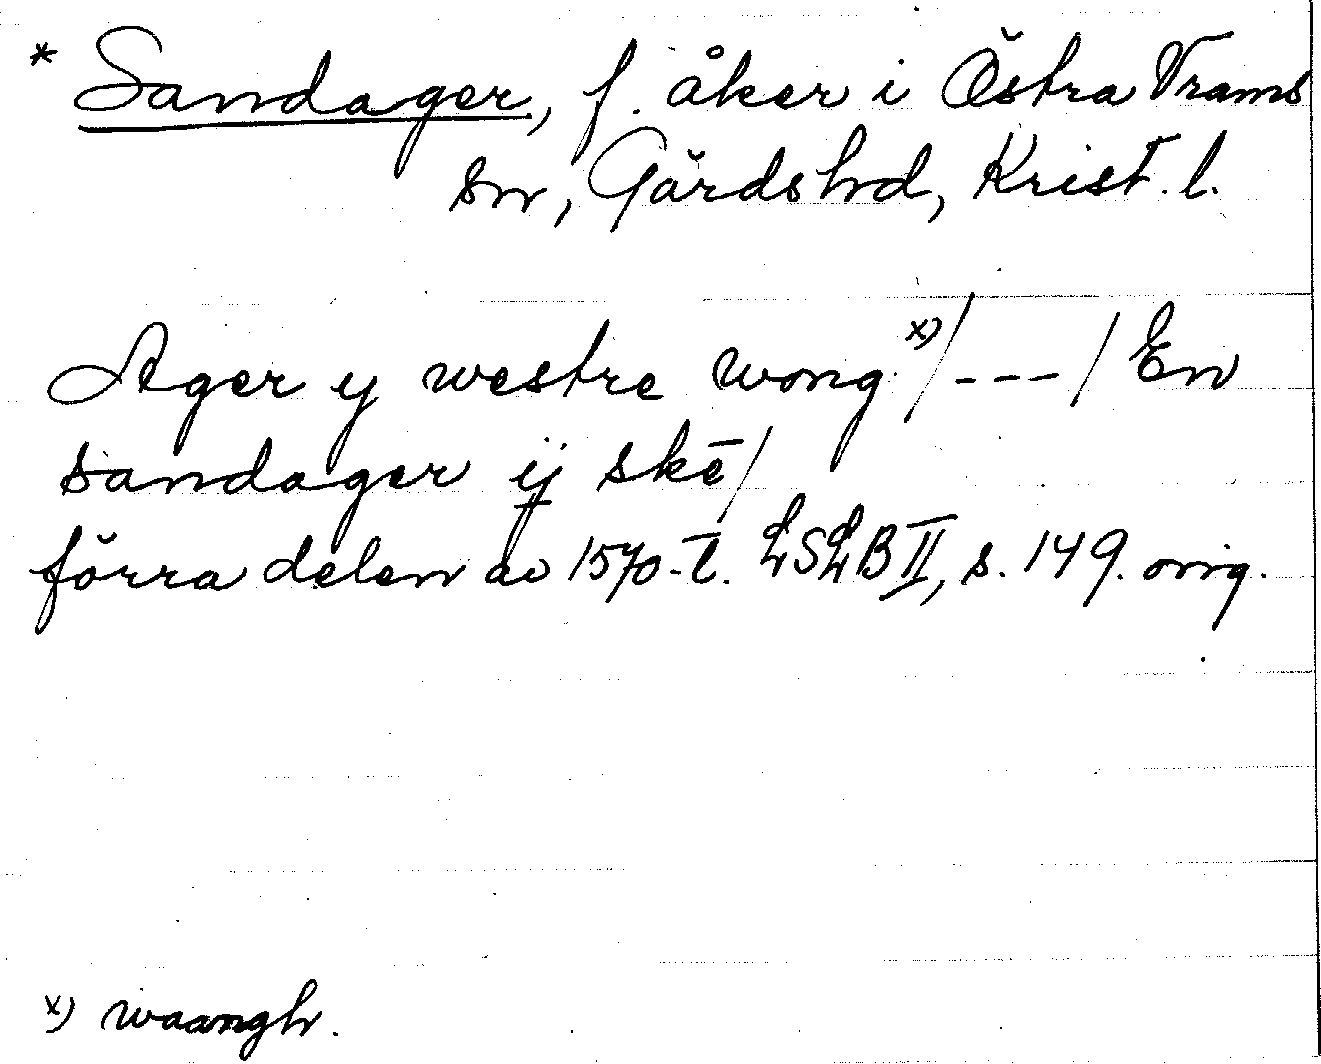 * Sandager, f. åker i Östra Vrams
sn, Gärds hd, Krist. l.
Ager y westre wong x) /---/ En
sandager ij skē/
förra delen av 1570-t. LSLB II, s. 149. orig.
x) waangh.